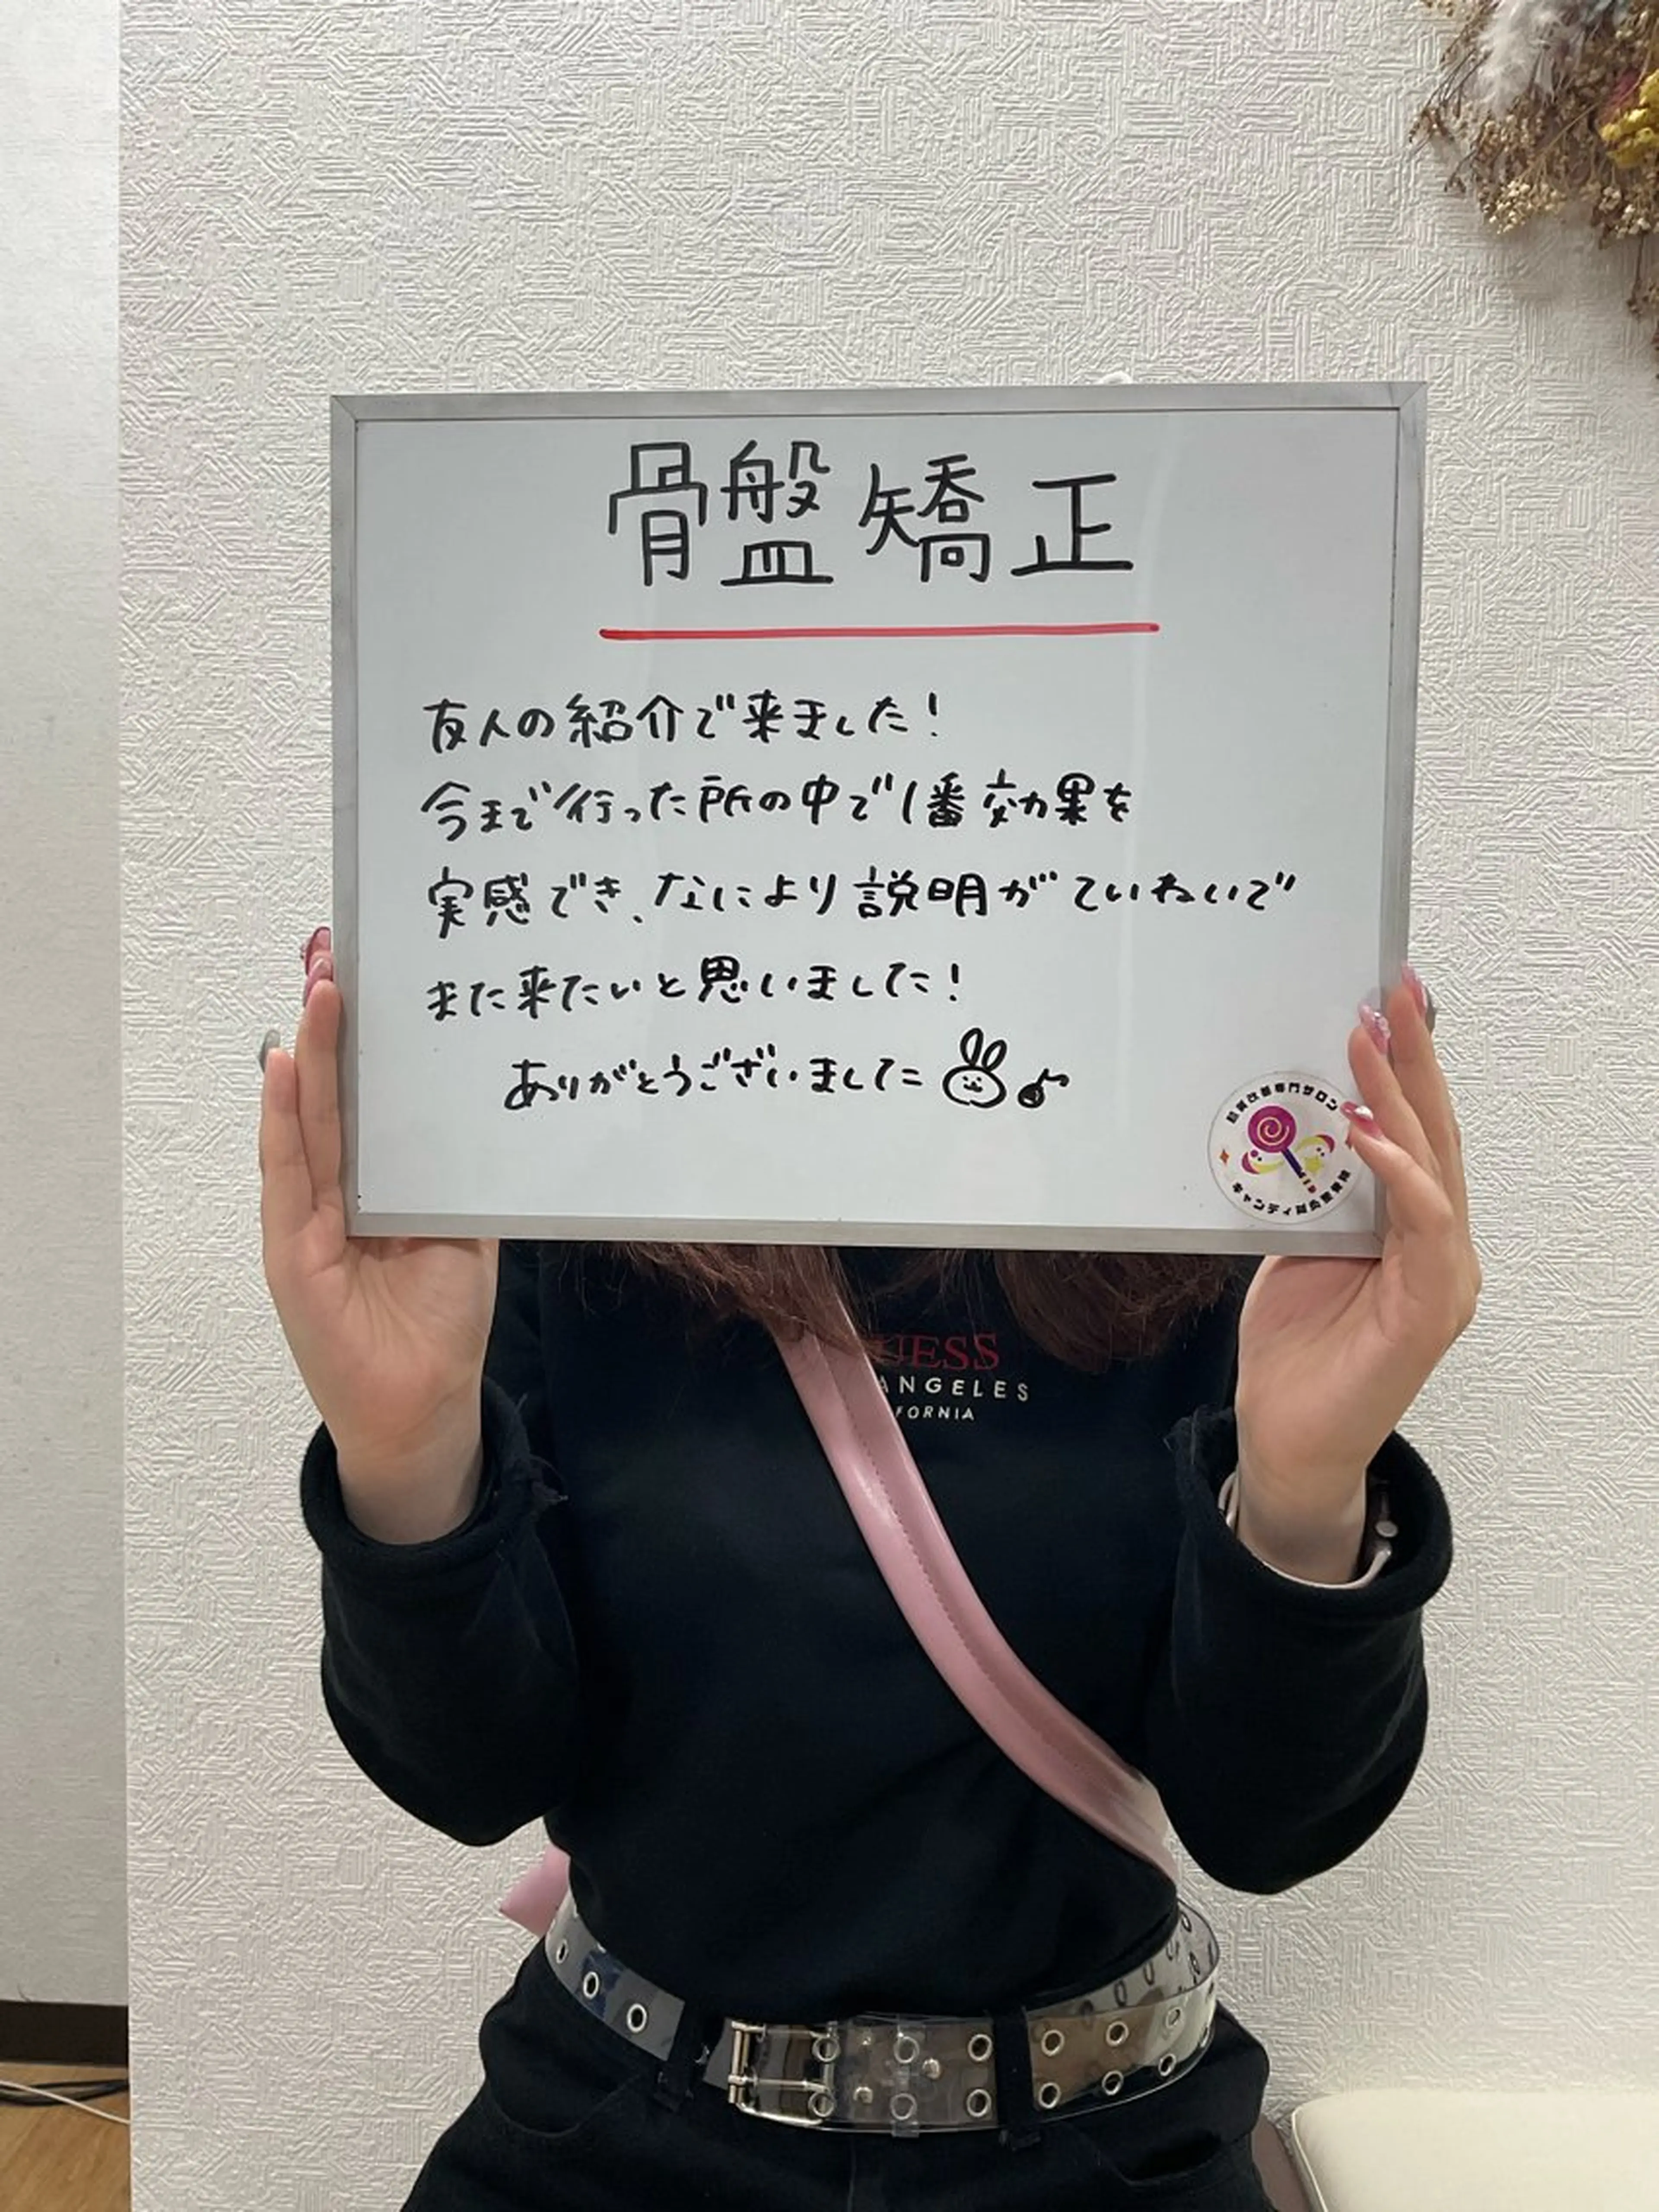 骨盤矯正
友人の紹介で来ました!
今まで行った所の中で1番効果を
実感でき、なにより説明がていねいで
また来たいと思いました!
ありがとうございました
専門サロン
キャンディ
UESS
ANGELES
FORNIA